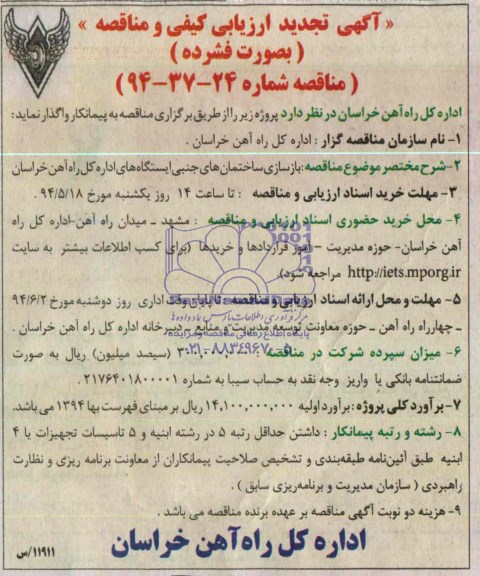 « آگهی تجدید ارزیابی کیفی و مناقصه »
( بصورت فشرده )
( مناقصه شماره ۲۴-۳۷-۹۴ )
اداره کل راه آهن خراسان در نظر دارد پروژه زیر را از طریق برگزاری مناقصه به پیمانکار واگذار نماید:
۱- نام سازمان مناقصه گزار : اداره کل راه آهن خراسان .
۲-شرح مختصر موضوع مناقصه:بازسازی ساختمان های جنبی ایستگاه های اداره کل راه آهن خراسان
۳- مهلت خرید اسناد ارزیابی و مناقصه : تا ساعت ۱۴ روز یکشنبه مورخ ۹۴/۵/۱۸ .
۴- محل خرید حضوری اسناد ارزیابی و مناقصه : مشهد ـ میدان راه آهن-اداره کل راه
آهن خراسان- حوزه مدیریت – امور قراردادها و خریدها (برای کسب اطلاعات بیشتر به سایت
http://iets.mporg.ir مراجعه شود).
۵- مهلت و محل ارائه اسناد ارزیابی و مناقصه : تا پایان وقت اداری روز دوشنبه مورخ ۹۴/۶/۲
ـ چهارراه راه آهن ـ حوزه معاونت توسعه مدیریت و منابع ـ دبیرخانه اداره کل راه آهن خراسان .
۶- میزان سپرده شرکت در مناقصه (سیصد میلیون) ریال به صورت
ضمانتنامه بانکی یا واریز وجه نقد به حساب سیبا به شماره ۲۱۷۶۴۰۱۸۰۰۰۰۱ .
۷- برآورد کلی پروژه : برآورد اولیه ۱۴,۱۰۰,۰۰۰,۰۰۰ ریال بر مبنای فهرست بها ۱۳۹۴ می باشد.
۸- رشته و رتبه پیمانکار : داشتن حداقل رتبه ۵ در رشته ابنیه و ۵ تاسیسات تجهیزات یا ۴
ابنیه طبق آئین‌نامه طبقه‌بندی و تشخیص صلاحیت پیمانکاران از معاونت برنامه ریزی و نظارت
راهبردی ( سازمان مدیریت و برنامه‌ریزی سابق ) .
۹- هزینه دو نوبت آگهی مناقصه بر عهده برنده مناقصه می باشد .
اداره کل راه‌آهن خراسان
۱۱۹۱۱/س
پایگاه اطلاع رسانی مناقصه و مزایده
۰۲۱-۸۸۳۴۹۶۷۰-۵